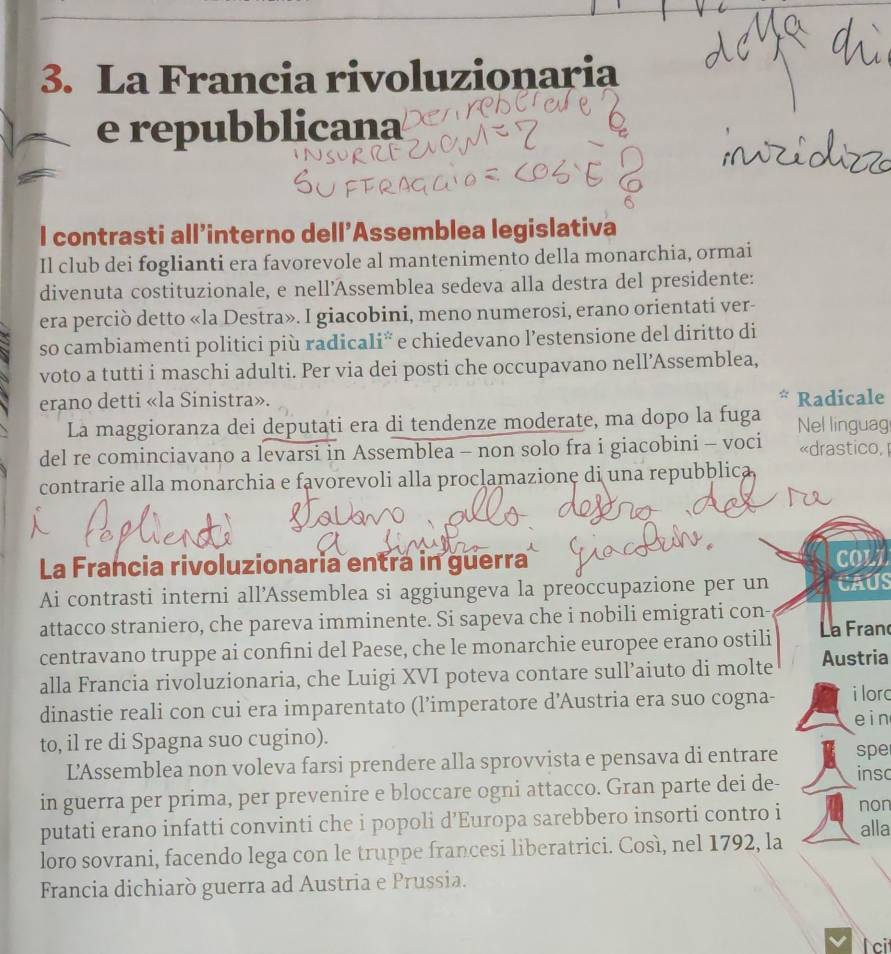 della
3. La Francia rivoluzionaria
e repubblicana
INSURREZIONI = ?
SUFFRAGGIO = COS'È ?
I contrasti all'interno dell'Assemblea legislativa
Il club dei foglianti era favorevole al mantenimento della monarchia, ormai
divenuta costituzionale, e nell'Assemblea sedeva alla destra del presidente:
era perciò detto «la Destra». I giacobini, meno numerosi, erano orientati ver-
so cambiamenti politici più radicali* e chiedevano l'estensione del diritto di
voto a tutti i maschi adulti. Per via dei posti che occupavano nell'Assemblea,
erano detti «la Sinistra».
La maggioranza dei deputati era di tendenze moderate, ma dopo la fuga
del re cominciavano a levarsi in Assemblea – non solo fra i giacobini – voci
contrarie alla monarchia e favorevoli alla proclamazione di una repubblica.
* Radicale
Nel linguag
«drastico,
i foglienti stavano allo destro del re
a sinistra i giacobini.
La Francia rivoluzionaria entra in guerra
Ai contrasti interni all'Assemblea si aggiungeva la preoccupazione per un
attacco straniero, che pareva imminente. Si sapeva che i nobili emigrati con-
centravano truppe ai confini del Paese, che le monarchie europee erano ostili
alla Francia rivoluzionaria, che Luigi XVI poteva contare sull'aiuto di molte
dinastie reali con cui era imparentato (l'imperatore d'Austria era suo cogna-
to, il re di Spagna suo cugino).
L'Assemblea non voleva farsi prendere alla sprovvista e pensava di entrare
in guerra per prima, per prevenire e bloccare ogni attacco. Gran parte dei de-
putati erano infatti convinti che i popoli d'Europa sarebbero insorti contro i
loro sovrani, facendo lega con le truppe francesi liberatrici. Così, nel 1792, la
Francia dichiarò guerra ad Austria e Prussia.
COLL
CAUS
La Franc
Austria
i loro
e i n
spe
inso
non
alla
I cit